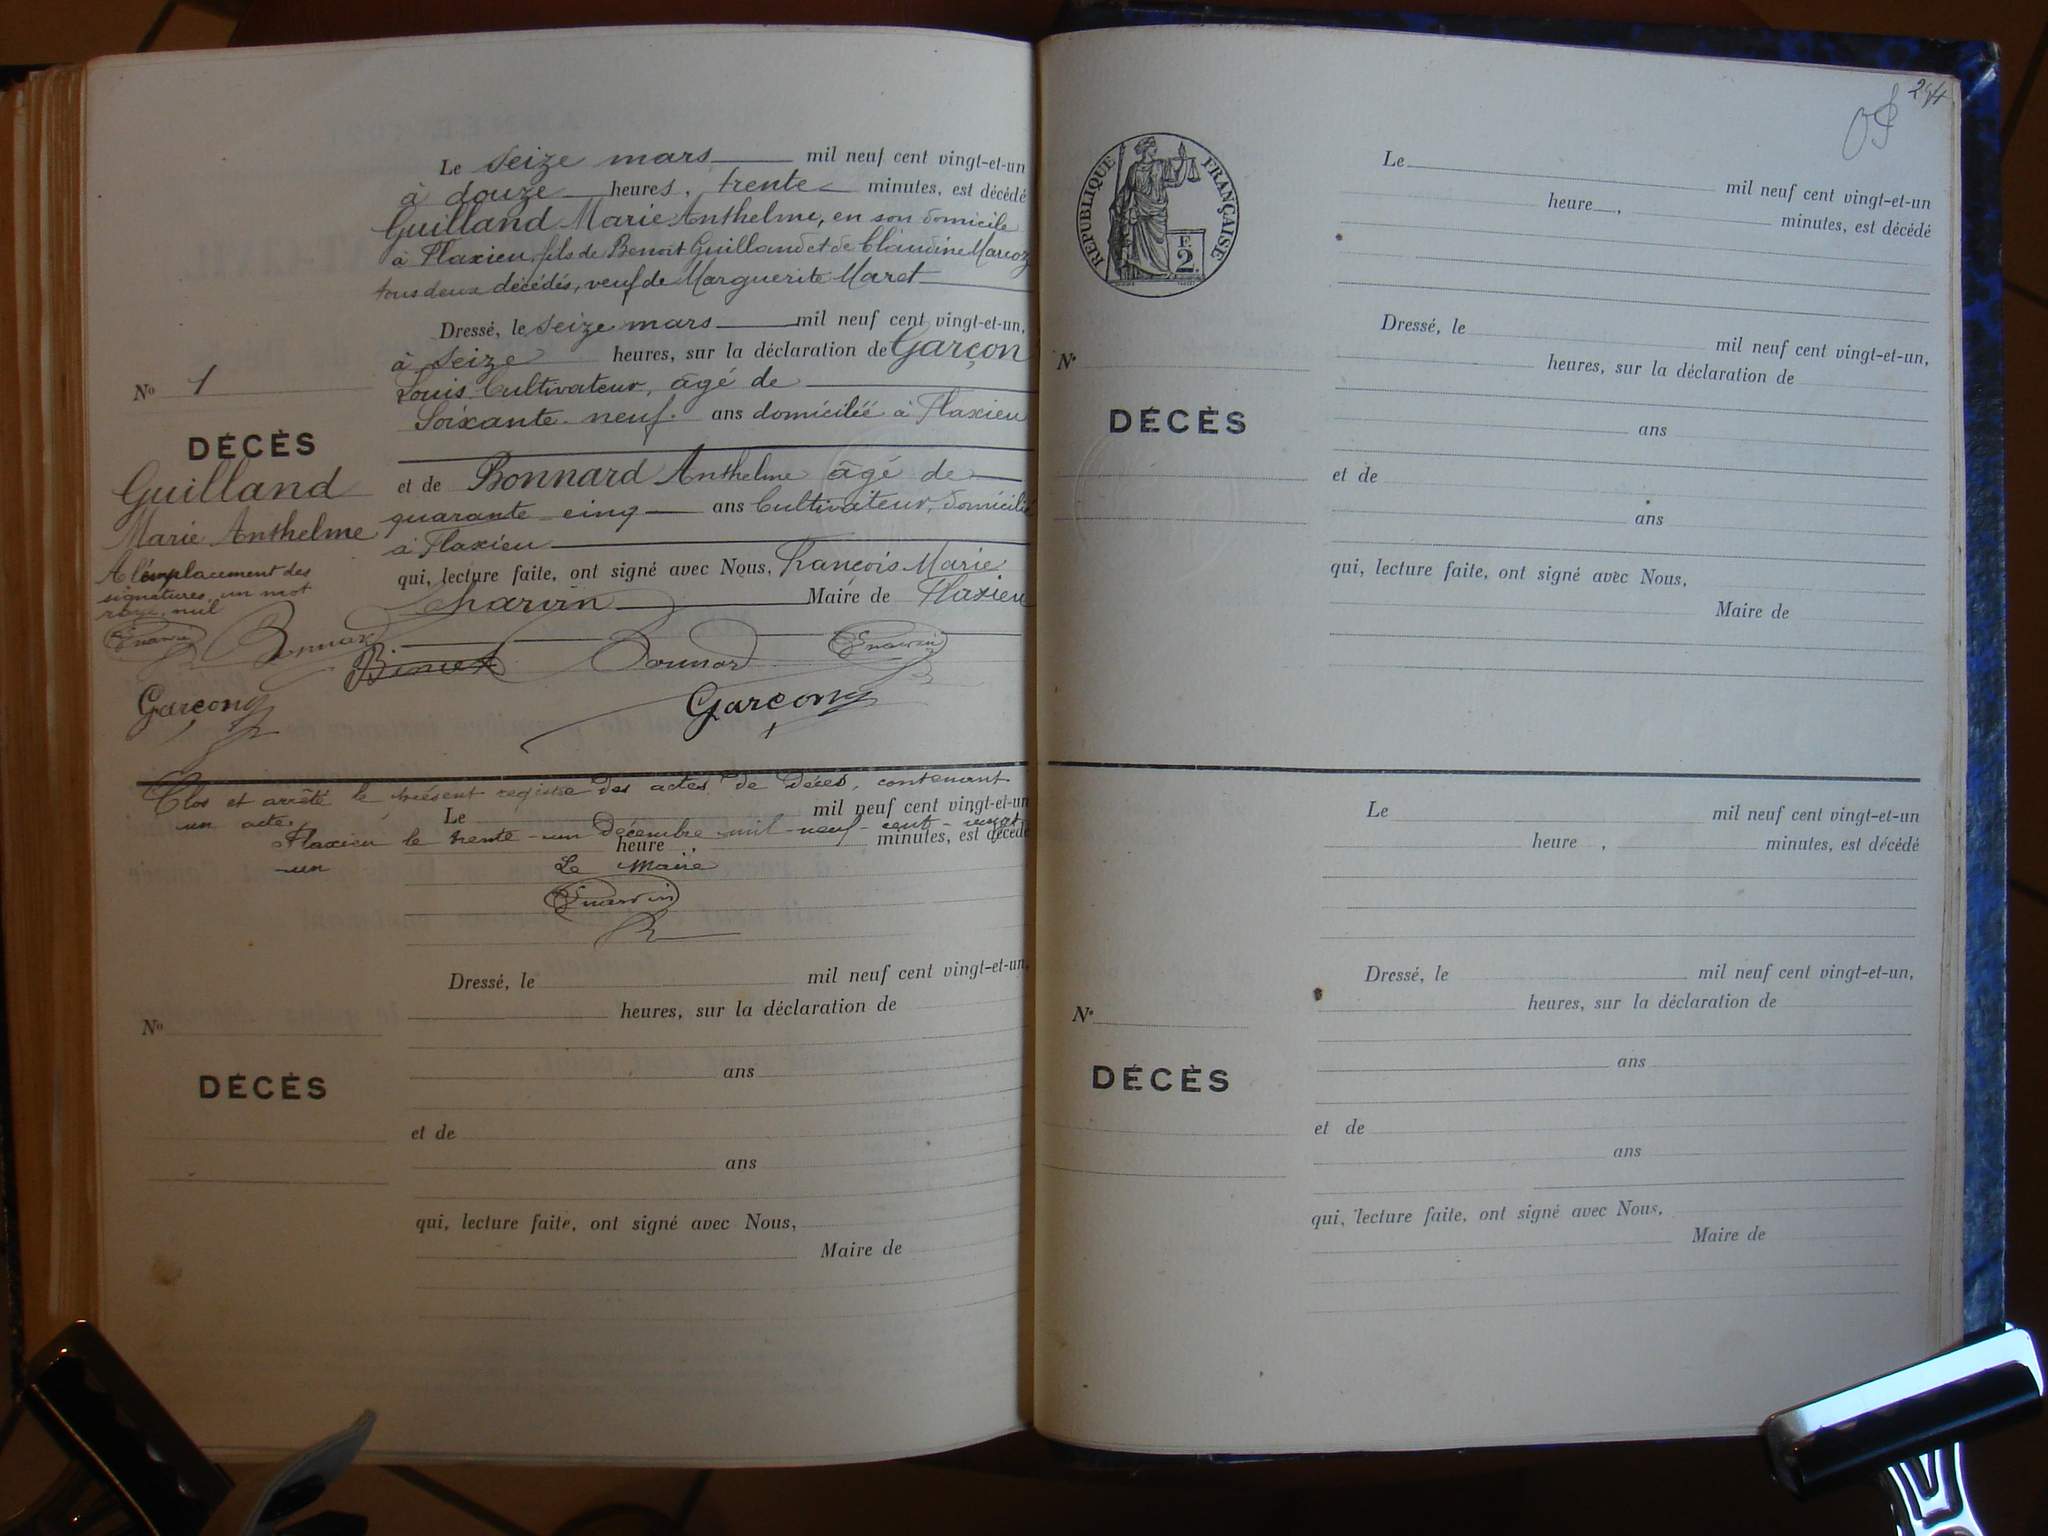 Le seize mars mil neuf cent vingt-et-un
à douze heures, trente minutes, est décédé
Guilland Marie Anthelme, en son domicile
à Flaxieu, fils de Benoit Guilland et de Claudine Marcoz
tous deux décédés, veuf de Marguerite Maret
Dressé, le seize mars mil neuf cent vingt-et-un,
à seize heures, sur la déclaration de Garçon
Louis Cultivateur, âgé de
Soixante-neuf ans domicilié à Flaxieu
et de Bonnard Anthelme âgé de
quarante-cinq ans Cultivateur, domicilié
à Flaxieu
qui, lecture faite, ont signé avec Nous, François Marie
Charvin Maire de Flaxieu
No 1
DÉCÈS
Guilland
Marie Anthelme
A l'emplacement des
signatures, un mot
rayé nul
Charvin Bonnard Bonnard Charvin
Garçon Garçon
Clos et arrêté le présent registre des actes de décès, contenant
un acte.
Flaxieu le trente-un décembre mil-neuf-cent-vingt
-un
Le Maire
Charvin
Le mil neuf cent vingt-et-un
heure , minutes, est décédé
Dressé, le mil neuf cent vingt-et-un,
heures, sur la déclaration de
No
DÉCÈS
ans
et de
ans
qui, lecture faite, ont signé avec Nous,
Maire de
294
RÉPUBLIQUE FRANÇAISE
F.
2
Le mil neuf cent vingt-et-un
heure , minutes, est décédé
Dressé, le mil neuf cent vingt-et-un,
heures, sur la déclaration de
No
DÉCÈS
ans
et de
ans
qui, lecture faite, ont signé avec Nous,
Maire de
Le mil neuf cent vingt-et-un
heure , minutes, est décédé
Dressé, le mil neuf cent vingt-et-un,
heures, sur la déclaration de
No
DÉCÈS
ans
et de
ans
qui, lecture faite, ont signé avec Nous,
Maire de